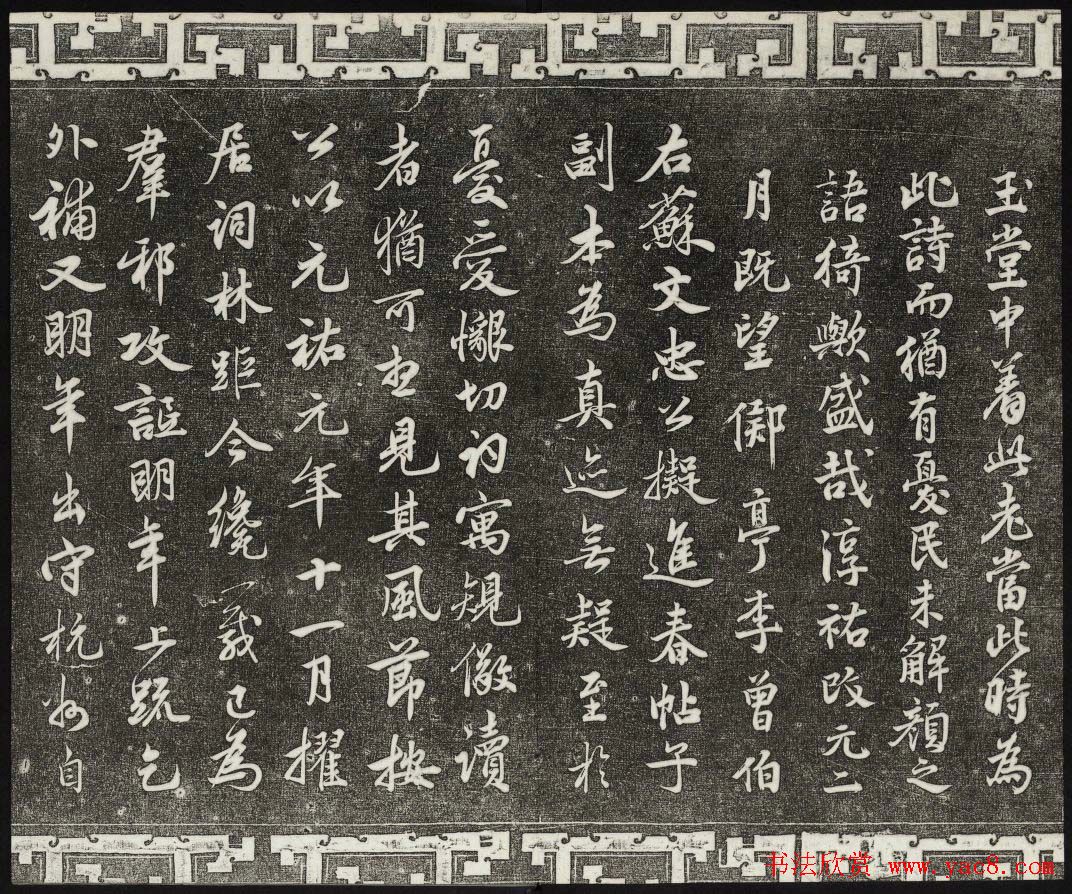 玉堂中着此老當此時為
此詩而猶有憂民未解顏之
語猗歟盛哉淳祐改元二
月既望鄮亭李曾伯
右蘇文忠公擬進春帖子
副本為真迹無疑至於
憂愛懇切初寓規儆讀
者猶可想見其風節按
公以元祐元年十一月擢
居詞林距今纔一載已為
羣邪攻詆明年上疏乞
外補又明年出守杭州自
书法欣赏 www.yac8.com